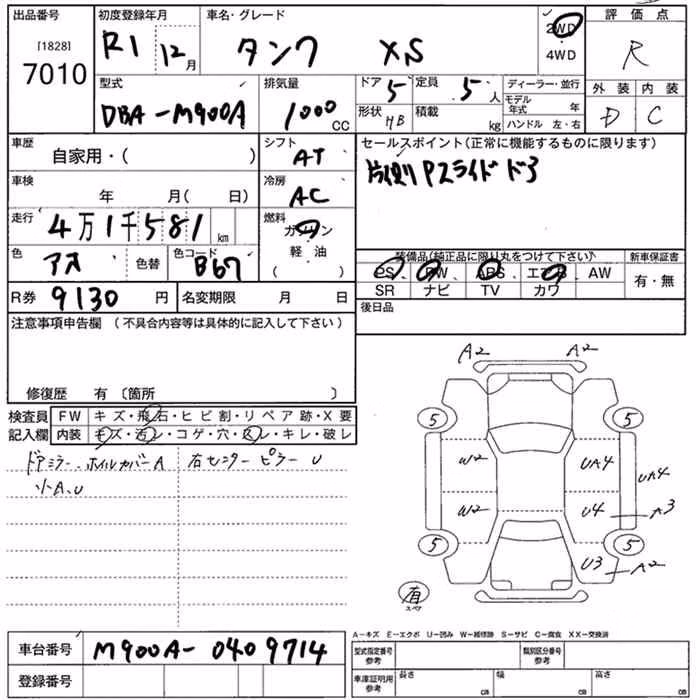 出品番号 初度登録年月 車名・グレード 2WD ・ 4WD 評価点
[1828] 7010 R1 12月 タンク XS R
型式 排気量 ドア 定員 ディーラー・並行 外装 内装
DBA-M900A 1000 CC 5 5 人 モデル年式 年 D C
形状 HB 積載 kg ハンドル 左・右
車歴 シフト セールスポイント(正常に機能するものに限ります)
自家用・( ) AT 片側Pスライドドア
車検 冷房
年 月( 日) AC
走行 燃料
4万1千581 km ガソリン
色 色コード 軽・油 装備品(純正品に限り丸をつけて下さい) 新車保証書
アオ 色替 B67 ( ) PS PW ABS エアB AW 有・無
R券 9130 円 名変期限 月 日 SR ナビ TV カワ
注意事項申告欄 (不具合内容等は具体的に記入して下さい) 後日品
修復歴 有 〔箇所 〕
検査員 FW キズ・飛石・ヒビ割・リペア跡・X要
記入欄 内装 キズ・汚レ・コゲ・穴・スレ・キレ・破レ
ドアミラー、ホイルカバーA 右センターピラーU
小A、U
A2 A2
5 5
W2 UA4 UA4
W2 U4 A3
5 5
U3 A2
有
スペア
A-キズ E-エクボ U-凹み W-補修跡 S-サビ C-腐食 XX-交換済
車台番号 M900A-0409714
型式指定番号 参考 類別区分番号 参考
登録番号 車庫証明用 参考 長さ cm 幅 cm 高さ cm